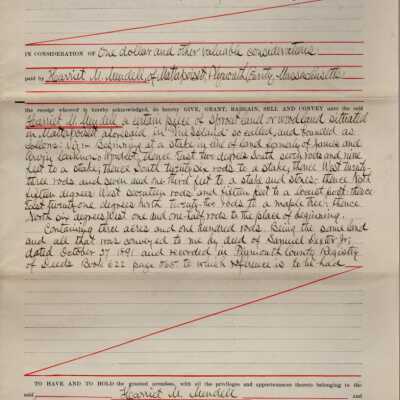 IN CONSIDERATION OF One dollar and other valuable considerations
paid by Harriet M. Mendell, of Mattapoisett, Plymouth County, Massachusetts
the receipt whereof is hereby acknowledged, do hereby GIVE, GRANT, BARGAIN, SELL AND CONVEY unto the said
Harriet M. Mendell a certain piece of Sprout land or woodland situated
in Mattapoisett aforesaid in so called, and bounded as
follows: Viz:- Beginning at a stake in line of land formerly of James and
thence East two degrees South sixty rods and nine
feet to a stake; thence South twenty six rods to a stake; thence West twenty
three rods and seven and one third feet to a stake and stones; thence North
fifteen degrees West seventeen rods and fifteen feet to a locust post; thence
East twenty one degrees north twenty-two rods to a maple tree; thence
North six degrees West one and one-half rods to the place of beginning.
Containing three acres and one hundred rods. Being the same land
and all that was conveyed to me by deed of Samuel Sexter Jr;
dated October 27 1891 and recorded in Plymouth County Registry
of Deeds Book 622 page to which reference is to be had
TO HAVE AND TO HOLD the granted premises, with all the privileges and appurtenances thereto belonging to the
said Harriet M. Mendell and